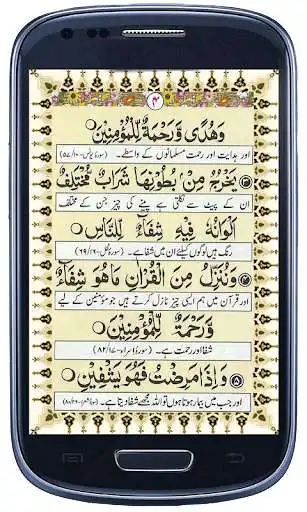 ۴
وَهُدًى وَّرَحْمَةٌ لِّلْمُؤْمِنِيْنَ
اور ہدایت اور رحمت مسلمانوں کے واسطے۔ (سورۂ یونس-۱۰/۵۷)
۳ يَخْرُجُ مِنْۢ بُطُوْنِهَا شَرَابٌ مُّخْتَلِفٌ
ان کے پیٹ سے نکلتی ہے پینے کی چیز جن کے مختلف
اَلْوَانُهٗ فِيْهِ شِفَآءٌ لِّلنَّاسِ
رنگ ہیں لوگوں کیلئے ان میں شفا ہے۔ (سورۂ نحل-۱۶/۶۹)
۴ وَنُنَزِّلُ مِنَ الْقُرْاٰنِ مَا هُوَ شِفَآءٌ
اور قرآن میں ہم ایسی چیز نازل کرتے ہیں جو مؤمنین کے لیے
وَّرَحْمَةٌ لِّلْمُؤْمِنِيْنَ
شفا اور رحمت ہے۔ (سورۂ اسراء-۱۷/۸۲)
۵ وَاِذَا مَرِضْتُ فَهُوَ يَشْفِيْنِ
اور جب میں بیمار ہوتا ہوں تو اللہ مجھے شفا دیتا ہے۔